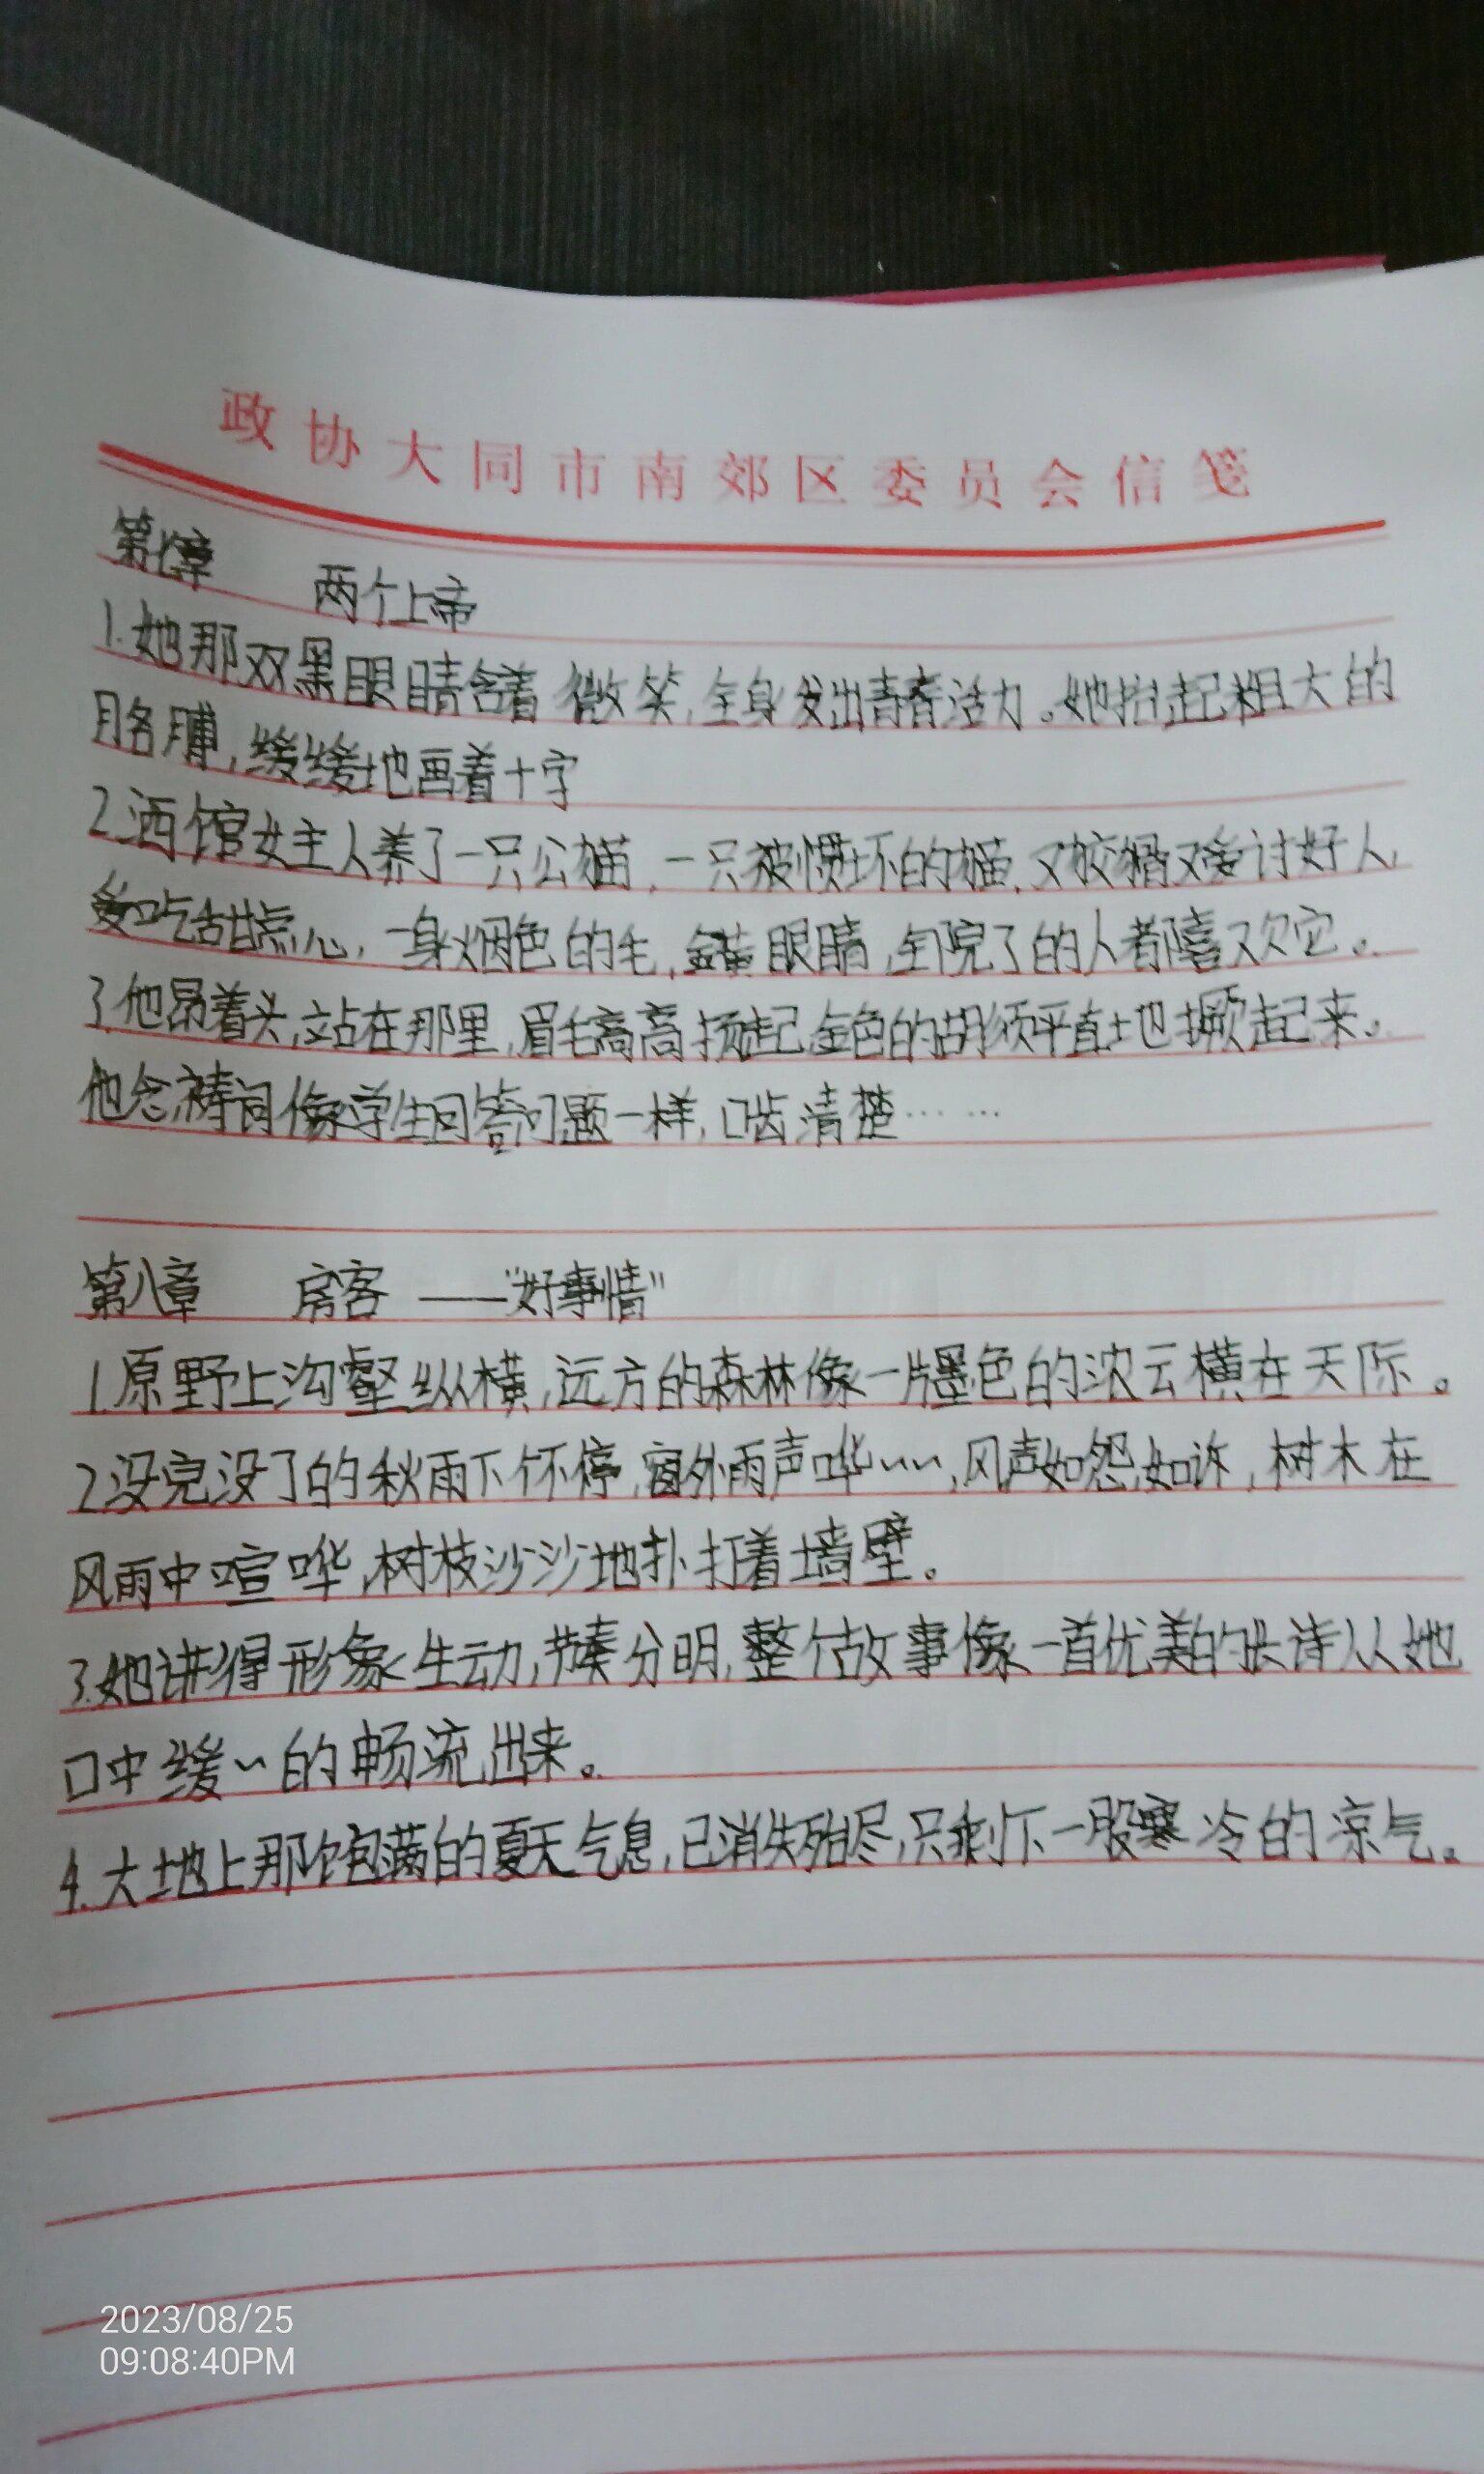 政协大同市南郊区委员会信笺
第七章 两个上帝
1.她那双黑眼睛含着微笑,全身发出青春活力。她抬起粗大的
胳膊,缓缓地画着十字
2.酒馆女主人养了一只公猫,一只被惯坏的猫,又狡猾又爱讨好人,
爱吃甜点心,一身烟色的毛,金黄眼睛,全院了的人都喜欢它。
3.他昂着头,站在那里,眉毛高高扬起,金色的胡须平直地撅起来。
他念祷词像学生回答问题一样,口齿清楚……
第八章 房客——“好事情”
1.原野上沟壑纵横,远方的森林像一片墨色的浓云横在天际。
2.没完没了的秋雨下个不停,窗外雨声哗~~~,风声如怨如诉,树木在
风雨中喧哗,树枝沙沙地扑打着墙壁。
3.她讲得形象生动,节奏分明,整个故事像一首优美的长诗从她
口中缓~的畅流出来。
4.大地上那饱满的夏天气息,已消失殆尽,只剩下一股寒冷的凉气。
2023/08/25
09:08:40PM